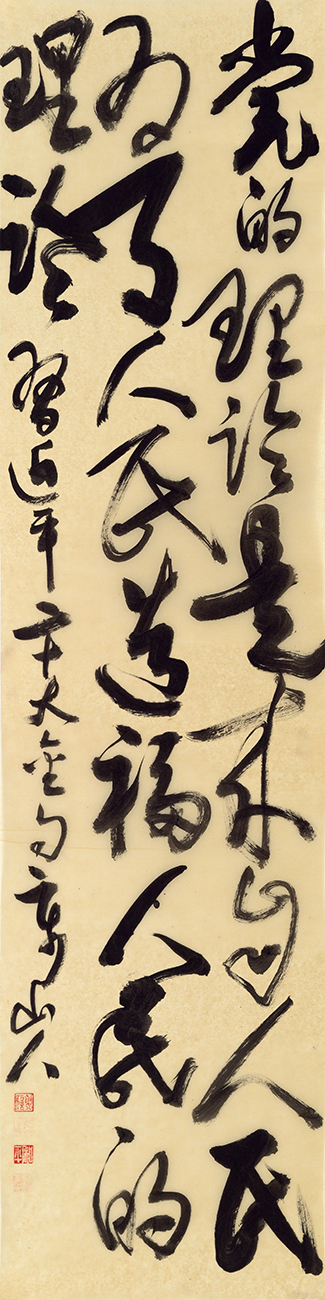 党的理论是来自人民
为了人民造福人民的
理论 习近平二十大金句 山人